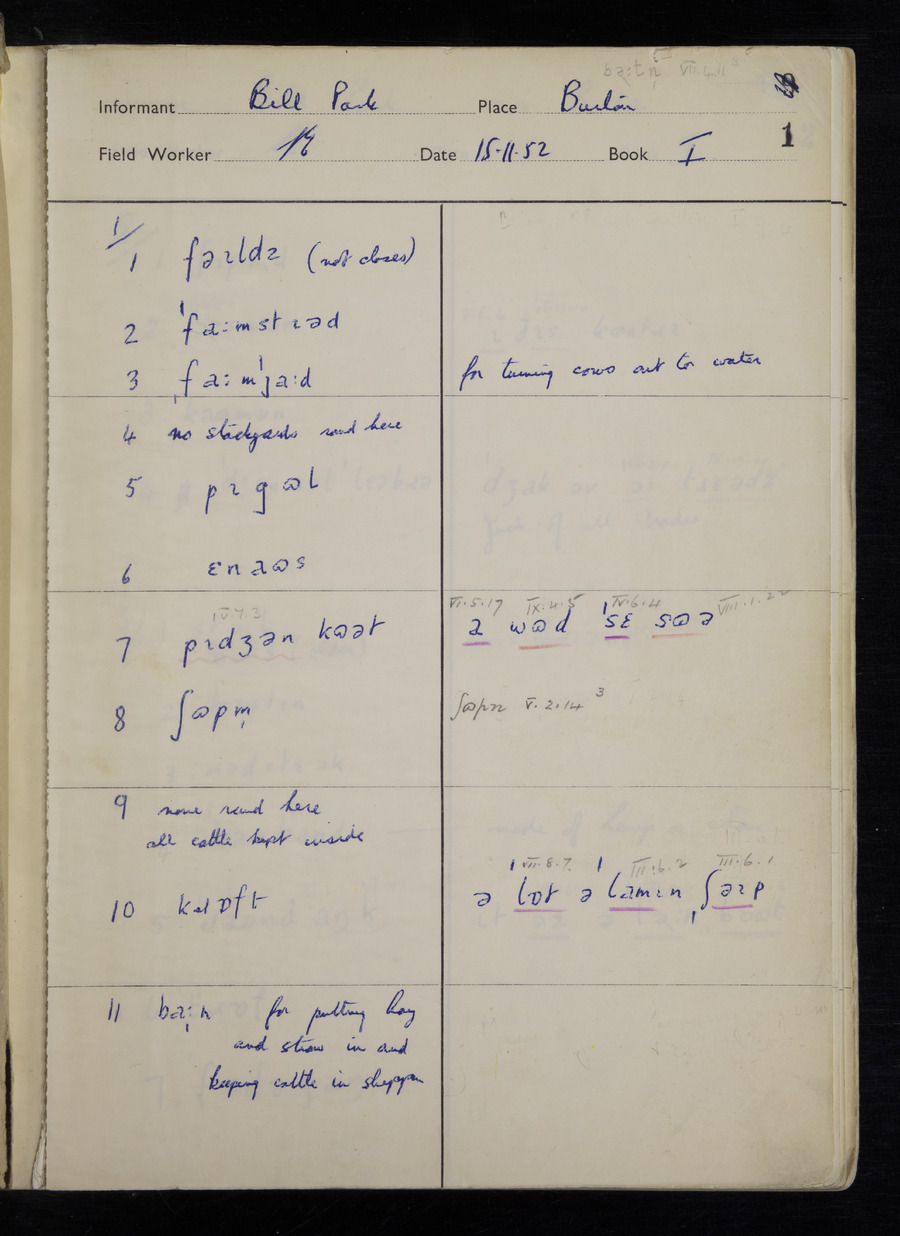 Informant Bill Park Place Burton
Field Worker Date 15·11·52 Book I 1
1/
1 fəɪldz (not closes)
2 ˈfaːmstɪəd
3 ˌfaːmˈjaːd for turning cows out to water
4 no stackyards round here
5 pɪgɷl
6 ɛnaɷs
VI·5·17 IX·4·5 IV·6·4 VIII·1·22
IV·7·3
7 pɪdʒən kɷət a wɷd ˈsɛ sɷə
8 ʃɷpm̩ V·2·14 3
9 none round here
all cattle kept inside
VII·8·7 III·6·2 III·6·1
10 ə ˈlɒt ə ˈlamɪn ˌʃəɪp
11 for putting hay
and straw in and
keeping cattle in shuppen